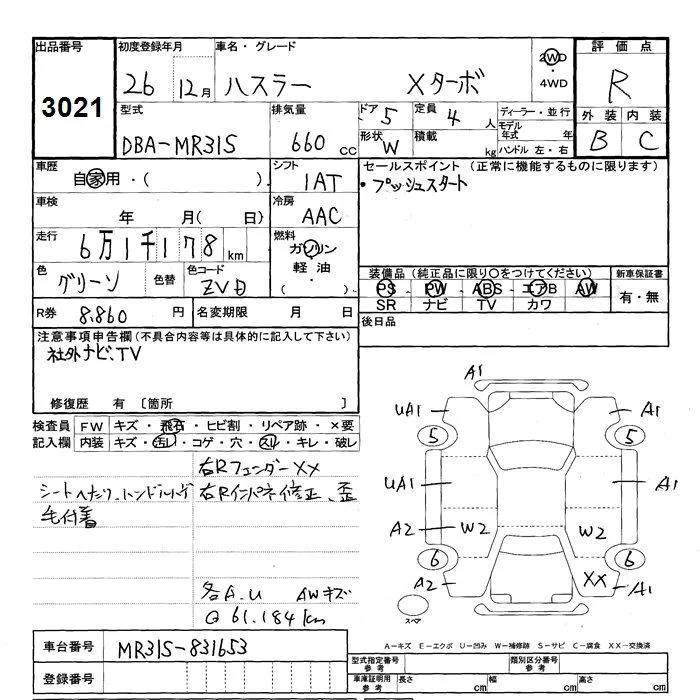 出品番号 初度登録年月 車名・グレード 評価点
3021 26 12月 ハスラー Xターボ 2WD ・ 4WD R
型式 排気量 ドア 5 定員 4 人 ディーラー・並行 外装 内装
DBA-MR31S 660 cc 形状 W 積載 kg モデル年式 年 B C
ハンドル 左・右
車歴 自家用・( ) シフト 1AT セールスポイント (正常に機能するものに限ります)
・プッシュスタート
車検 年 月( 日) 冷房 AAC
走行 6万1千178 km 燃料 ガソリン
軽油・( )
色 グリーン 色替 色コード ZVD 装備品(純正品に限り○をつけてください) 新車保証書
PS ・ PW ・ ABS ・ エアB ・ AW 有・無
SR ナビ TV カワ
R券 8,860 円 名変期限 月 日 後日品
注意事項申告欄(不具合内容等は具体的に記入して下さい)
社外ナビ、TV
修復歴 有 〔箇所 〕
検査員 FW キズ・飛石・ヒビ割・リペア跡・×要
記入欄 内装 キズ・汚レ・コゲ・穴・スレ・キレ・破レ
右Rフェンダー XX
シートへたり、ハンドルハゲ 右Rインパネ修正、歪
毛付着
各A.U AWキズ
@ 61.184km
車台番号 MR31S-831653
登録番号
A1
UA1 A1
5 5
UA1 A1
A2 W2 W2
6 6
A2 XX A1
スペア
A-キズ E-エクボ U-凹み W-補修跡 S-サビ C-腐食 XX-交換済
型式指定番号 参考 類別区分番号 参考
車庫証明用 参考 長さ cm 幅 cm 高さ cm